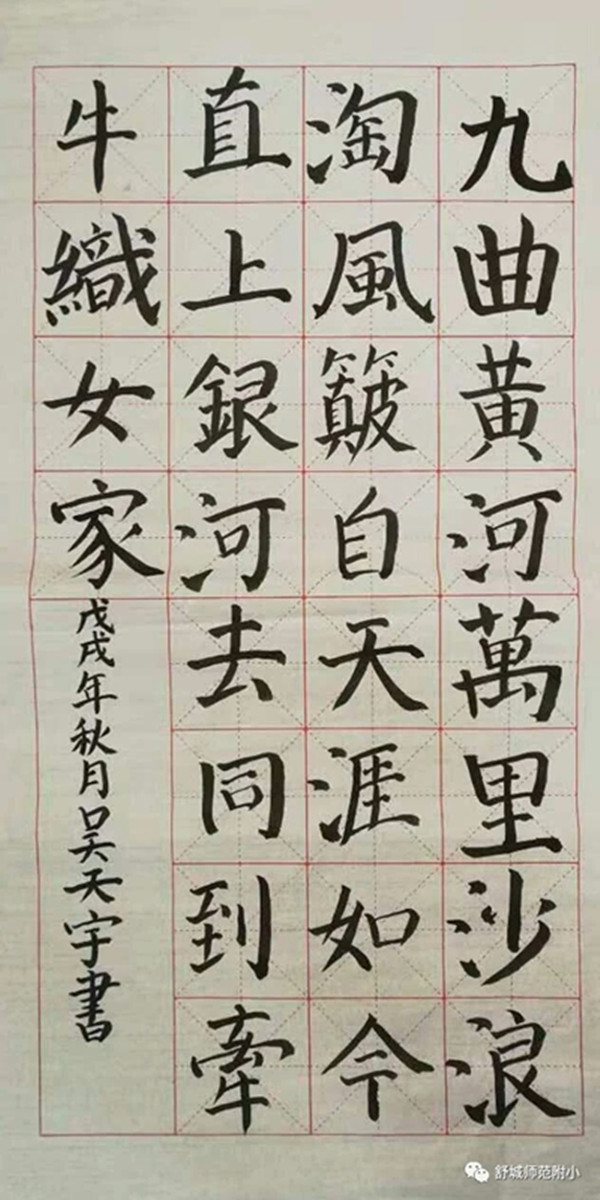 九曲黄河萬里沙浪
淘風簸自天涯如今
直上銀河去同到牽
牛織女家
戊戌年秋月吴天宇書
舒城师范附小